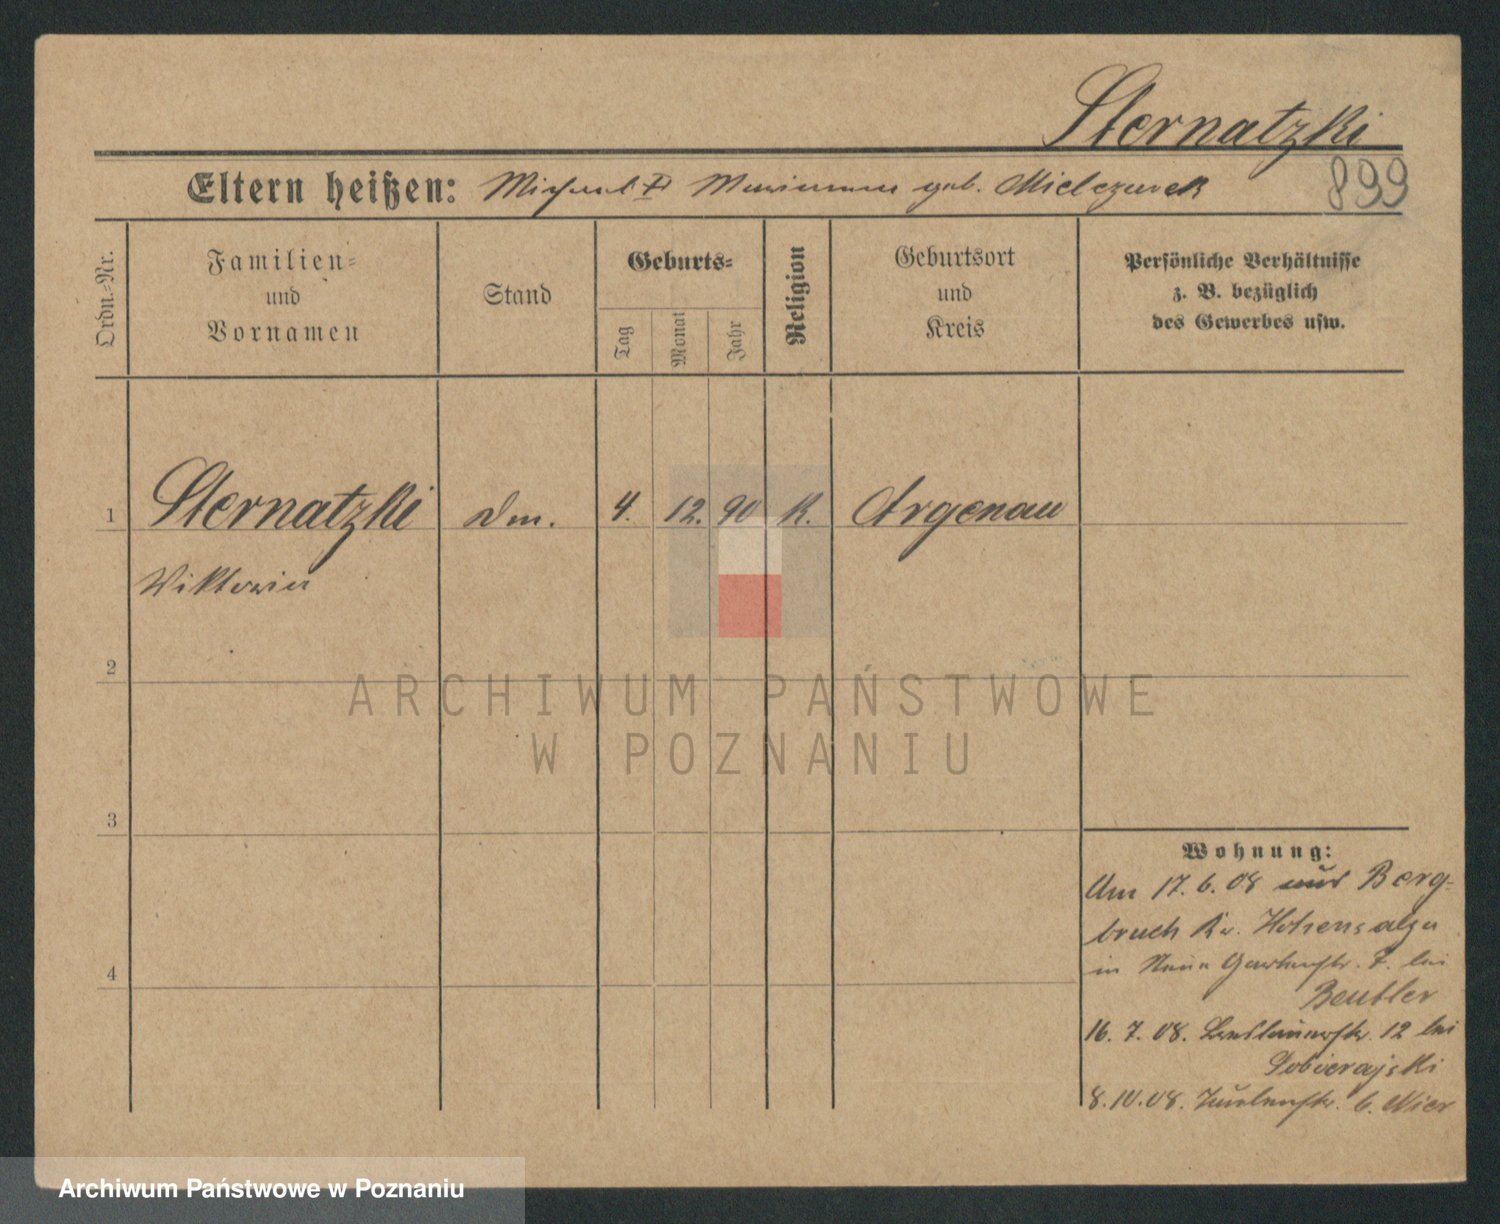 Sternatzki
Eltern heißen: Michael & Marianna geb. Mielczarek
899
Ordn.-Nr.
Familien-
und
Vornamen
Stand
Geburts-
Tag
Monat
Jahr
Religion
Geburtsort
und
Kreis
Persönliche Verhältnisse
z. B. bezüglich
des Gewerbes usw.
1 Sternatzki 4. 12. 90 K. Argenau
Viktoria
2
3
4
Wohnung:
Am 17. 6. 08 aus Berg-
bruch Kr. Hohensalza
in Neue Gartenstr. 7. bei
Beutler
16. 7. 08. Breslauerstr. 12 bei
Sobierajski
8. 10. 08.
ARCHIWUM PAŃSTWOWE
W POZNANIU
Archiwum Państwowe w Poznaniu